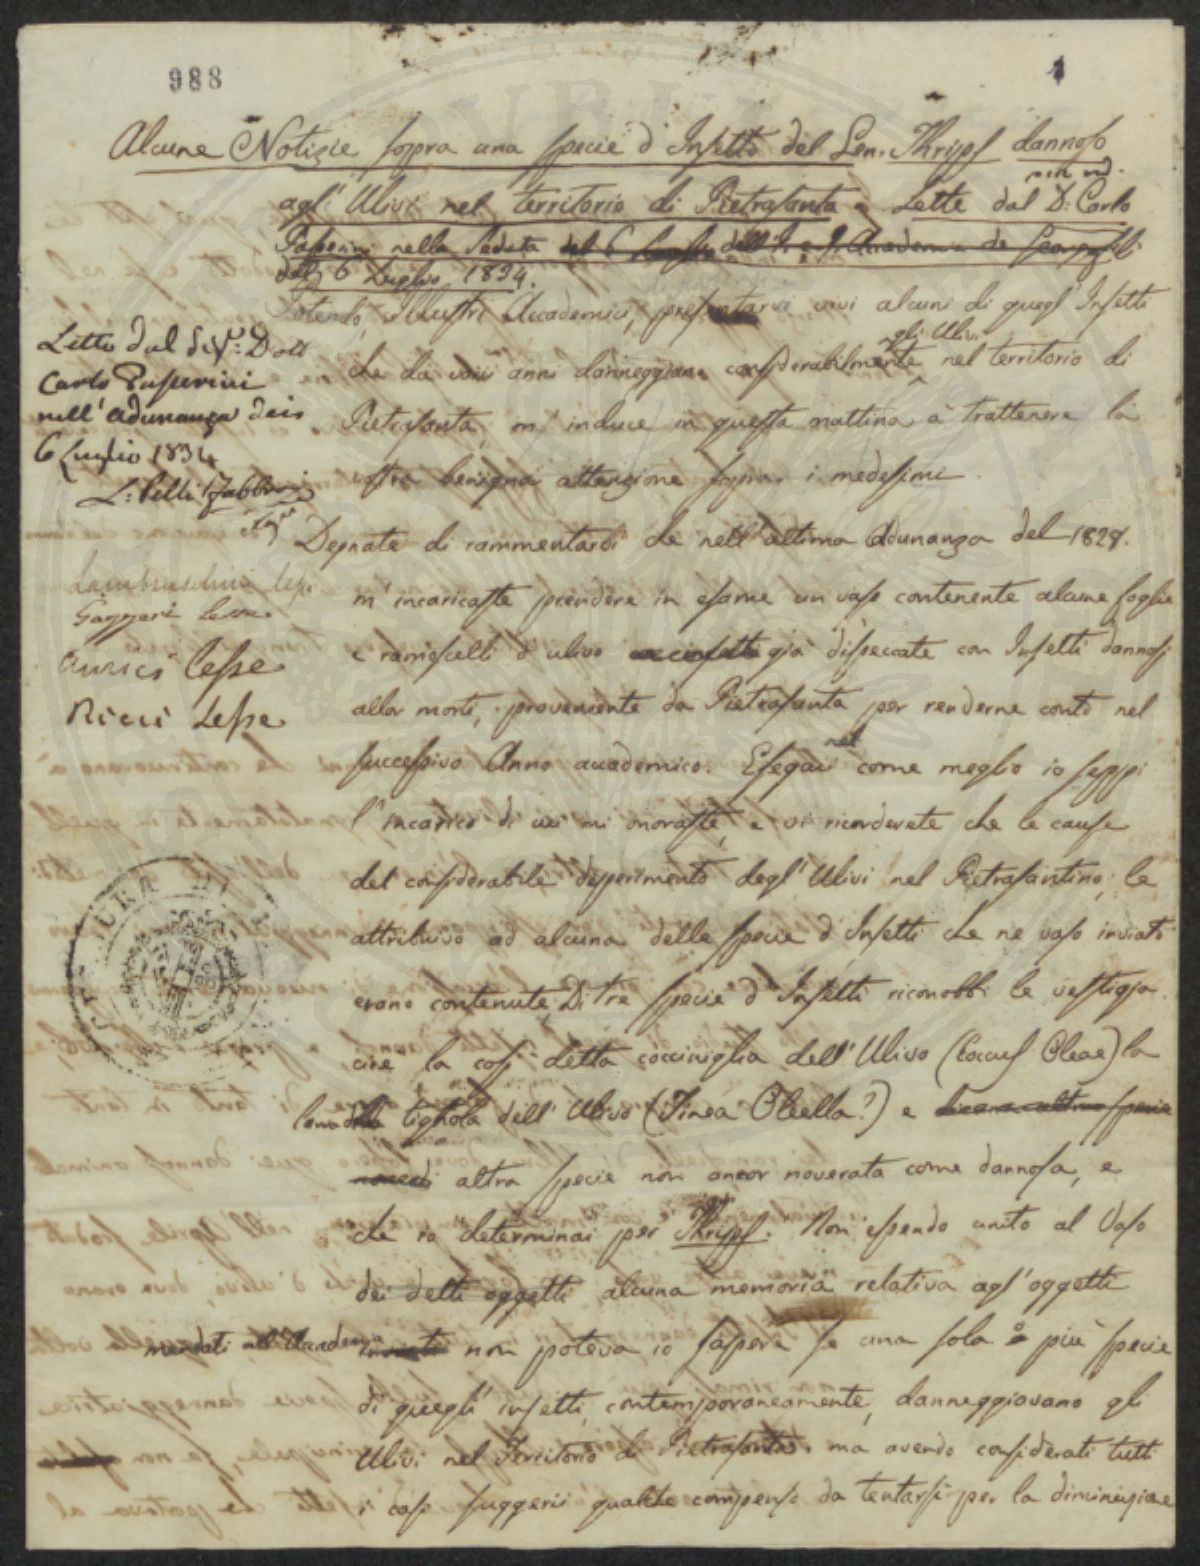 988
1
Alcune Notizie sopra una specie d'Insetto del Gen. Thrips dannoso
agl'Ulivi nel territorio di Pietrasanta Lette dal D: Carlo
Passerini nella Seduta del 6 Luglio dell'I. e R. Accademia de Georgofili
del 6 Luglio 1834.
Potendo, Illustri Accademici, presentarvi vivi alcuni di quegl'Insetti
che da varii anni danneggiano considerabilmente gli Ulivi nel territorio di
Pietrasanta, m'induce in questa mattina a trattenere la
vostra benigna attenzione sopra i medesimi.
Letto dal Sigr: Dott
Carlo Passerini
nell'adunanza dei
6 Luglio 1834
L: Pelli Fabbroni
Degnate di rammentarvi che nell'ultima adunanza del 1829.
m'incaricaste prendere in esame un vaso contenente alcune foglie
e ramoscelli d'ulivo già disseccate con Insetti dannosi
allor morti, proveniente da Pietrasanta per renderne conto nel
successivo Anno accademico. Eseguii come meglio io seppi
Lambruschini lesse
Gazzeri lesse
lesse
Ricci Lesse
l'incarico di cui mi onoraste, e vi ricorderete che le cause
del considerabile deperimento degl'Ulivi nel Pietrasantino, le
attribuivo ad alcuna delle specie d'Insetti che ne vaso inviato
erano contenute. Di tre specie d'Insetti riconobbi le vestigia.
cioe la così detta cocciniglia dell'Ulivo (Coccus Oleae) la
tignola dell'Ulivo (Tinea Oleella?) e
altra specie non ancor noverata come dannosa, e
che io determinai per Thrips. Non essendo unito al Vaso
dei detti oggetti alcuna memoria relativa agl'oggetti
mandati all'Accademia inviati non poteva io sapere se una sola o più specie
di quegli insetti, contemporaneamente, danneggiavano gli
Ulivi nel Territorio di Pietrasanta, ma avendo considerati tutti
i casi suggerii qualche compenso da tentarsi per la diminuzione